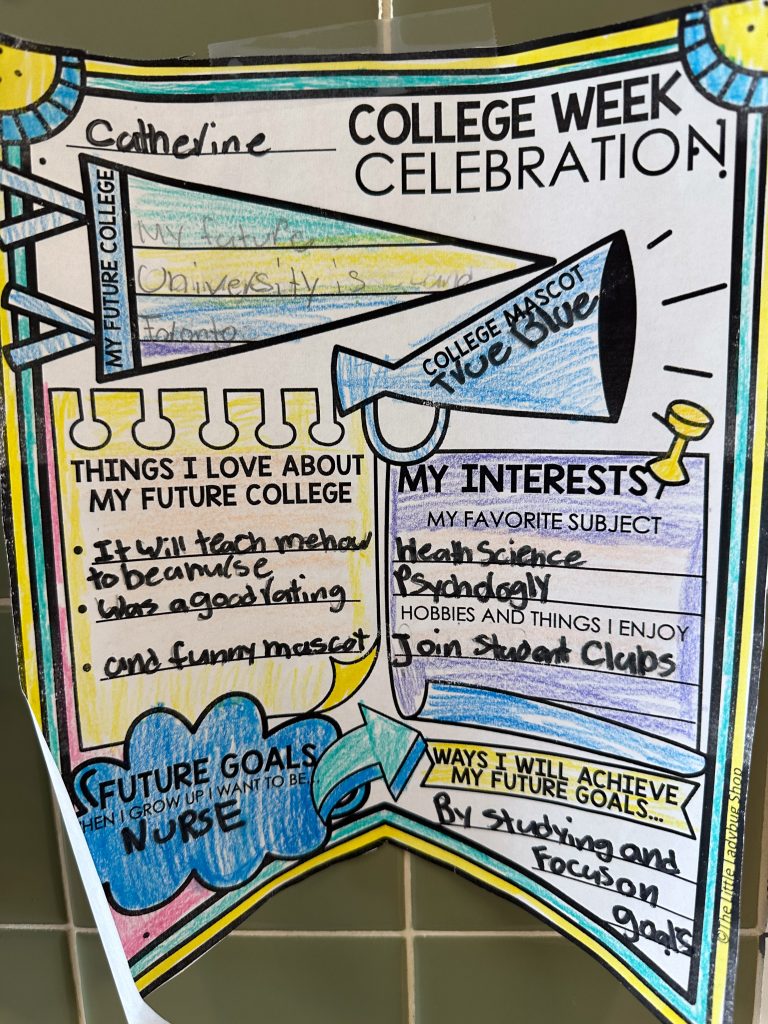 Catherine
COLLEGE WEEK
CELEBRATION!
MY FUTURE COLLEGE
My future
University is
Toronto
COLLEGE MASCOT
True Blue
THINGS I LOVE ABOUT
MY FUTURE COLLEGE
• It will teach me how
to be a nurse
• Was a good rating
• and funny mascot
MY INTERESTS
MY FAVORITE SUBJECT
Heath Science
Psychology
HOBBIES AND THINGS I ENJOY
Join Student Clubs
FUTURE GOALS
WHEN I GROW UP I WANT TO BE...
NURSE
WAYS I WILL ACHIEVE
MY FUTURE GOALS...
By studying and
Focus on
goals
©The Little Ladybug Shop